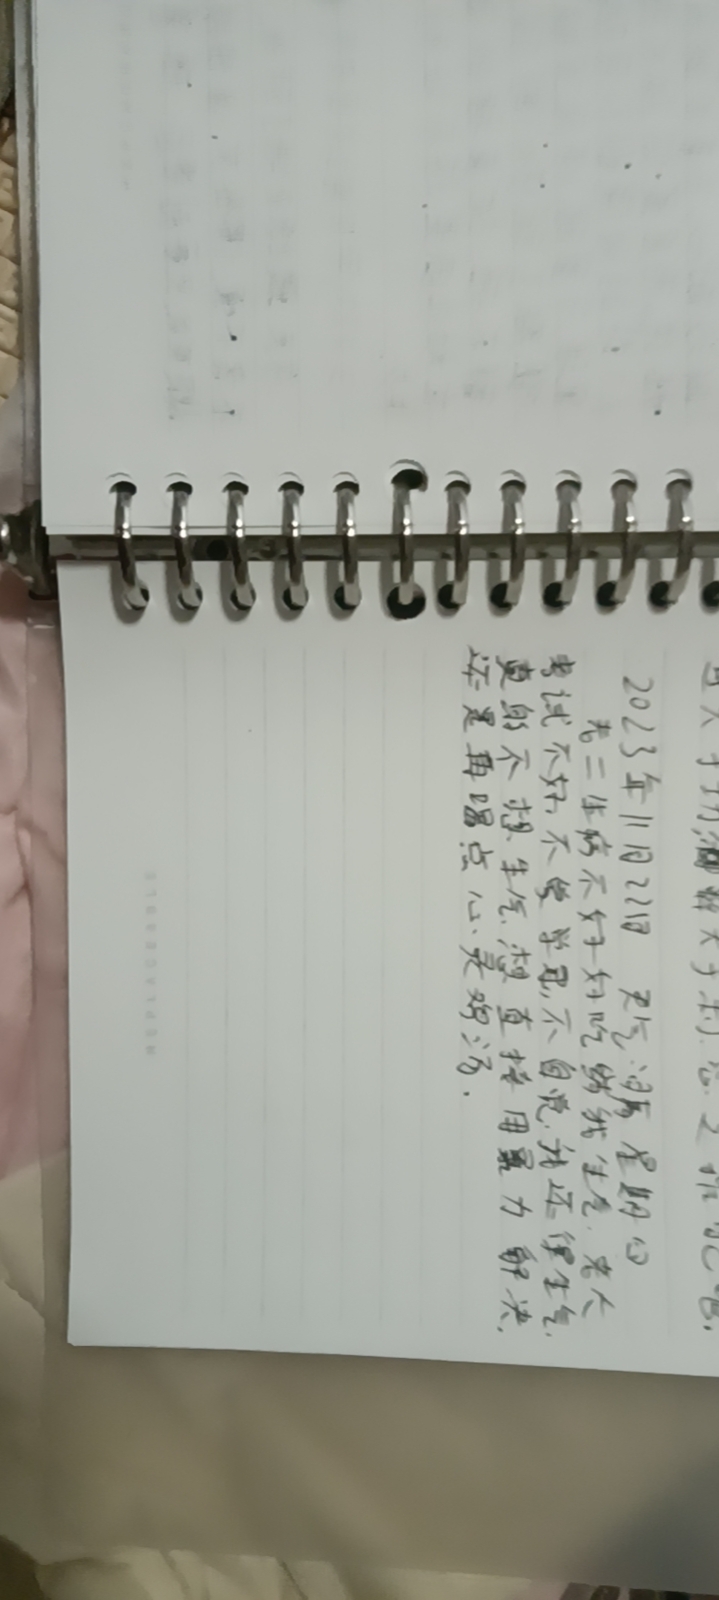 2023年11月22日 天气:晴 星期四
老二生病不好好吃药我生气.老大
考试不好.不爱学习,不自觉.我还得生气.
真的不想生气.想直接用暴力解决.
还是再喝点心灵鸡汤.